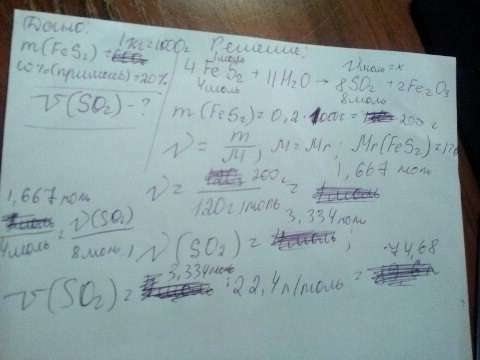 Дано:
m(FeS₂) = 1кг=1000г
ω%(примесь)=20%
V(SO₂) - ?
Решение:
ν моль = x
4FeS₂ + 11H₂O → 8SO₂ + 2Fe₂O₃
4моль 8моль
m(FeS₂) = 0,2 · 1000г = 200 г
ν = m/M, M = Mr; Mr(FeS₂)=120
ν = 200г / 120г/моль = 1,667 моль
1,667 моль / 4моль = ν(SO₂) / 8моль; ν(SO₂) = 3,334моль;
V(SO₂) = 3,334моль · 22,4л/моль = 74,68